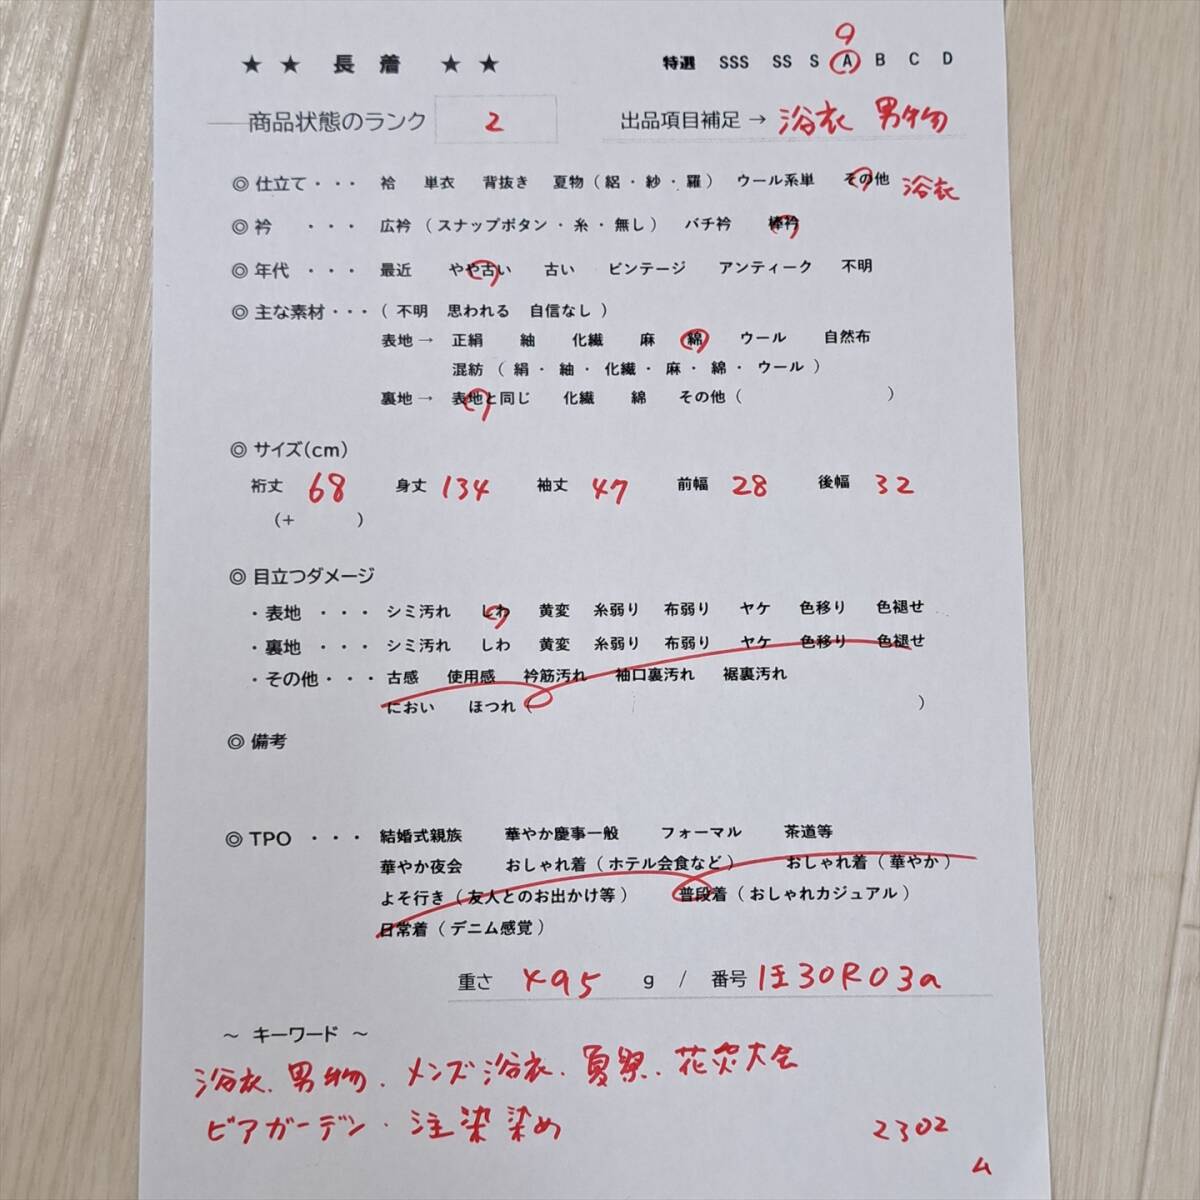 9
★ ★ 長 着 ★ ★ 特選 SSS SS S A B C D
商品状態のランク 2 出品項目補足 → 浴衣 男物
◎ 仕立て・・・ 袷 単衣 背抜き 夏物（絽・紗・羅） ウール系単 その他 浴衣
◎ 衿 ・・・ 広衿（スナップボタン・糸・無し） バチ衿 棒衿
◎ 年代 ・・・ 最近 やや古い 古い ビンテージ アンティーク 不明
◎ 主な素材・・・（ 不明 思われる 自信なし ）
表地→ 正絹 紬 化繊 麻 綿 ウール 自然布
混紡（ 絹・紬・化繊・麻・綿・ウール ）
裏地→ 表地と同じ 化繊 綿 その他（ ）
◎ サイズ(cm)
裄丈 68 身丈 134 袖丈 47 前幅 28 後幅 32
（+ ）
◎ 目立つダメージ
・表地 ・・・ シミ汚れ しわ 黄変 糸弱り 布弱り ヤケ 色移り 色褪せ
・裏地 ・・・ シミ汚れ しわ 黄変 糸弱り 布弱り ヤケ 色移り 色褪せ
・その他・・・ 古感 使用感 衿筋汚れ 袖口裏汚れ 裾裏汚れ
におい ほつれ（ ）
◎ 備考
◎ TPO ・・・ 結婚式親族 華やか慶事一般 フォーマル 茶道等
華やか夜会 おしゃれ着（ホテル会食など） おしゃれ着（華やか）
よそ行き（友人とのお出かけ等） 普段着（おしゃれカジュアル）
日常着（デニム感覚）
重さ 495 g / 番号 30R03a
～ キーワード ～
浴衣、男物、メンズ浴衣、夏祭、花火大会
ビアガーデン・注染染め 2302
ム